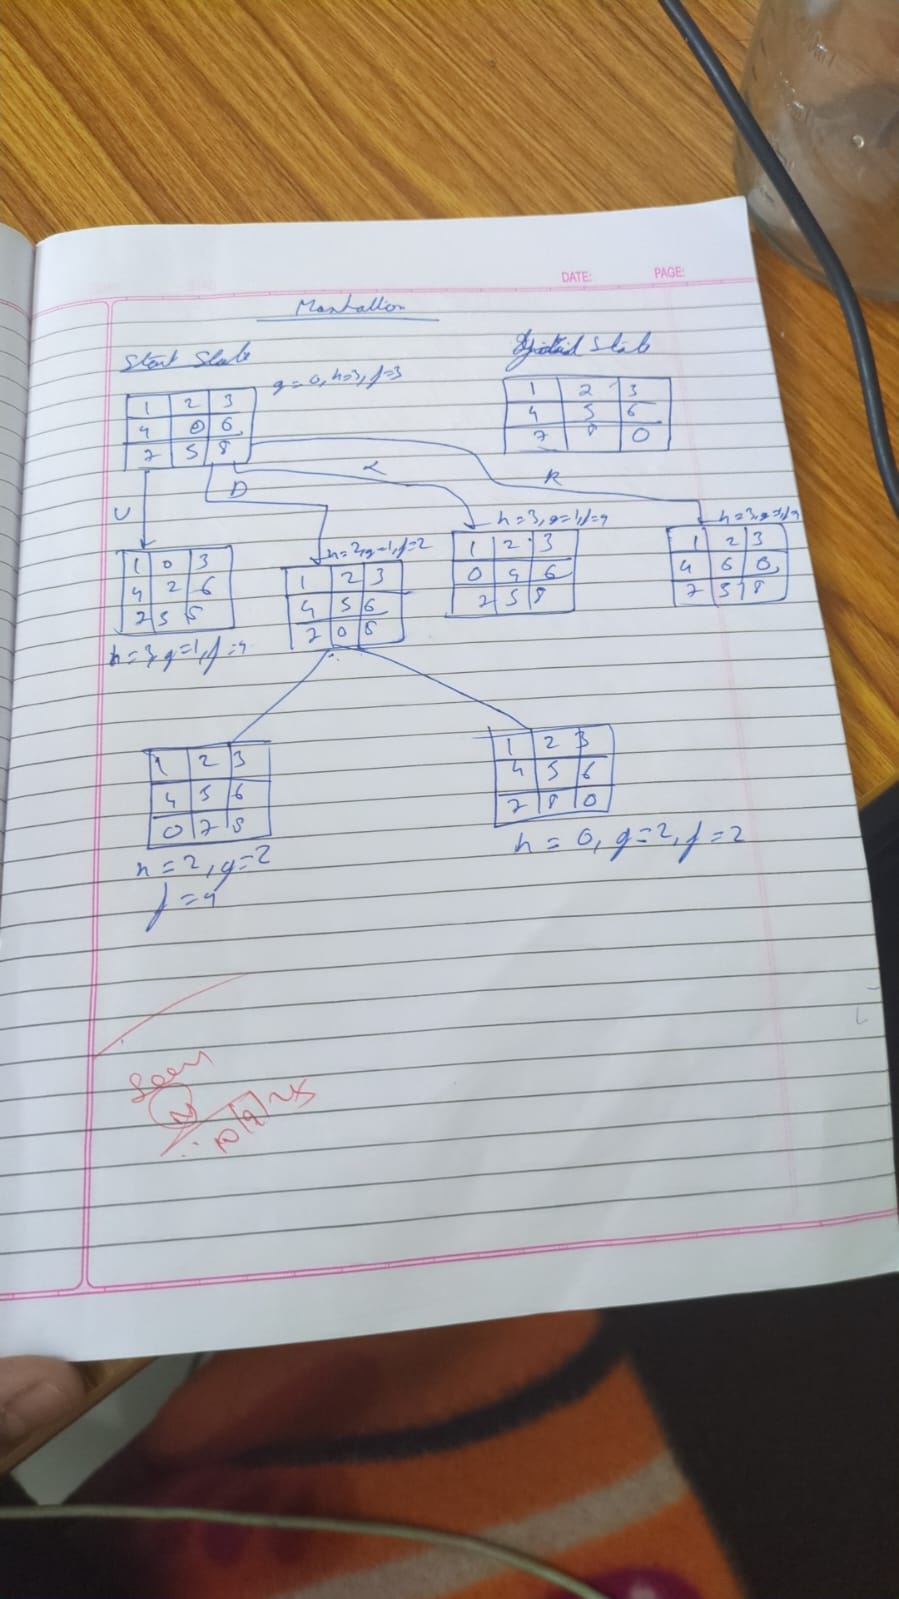 DATE: PAGE:
Manhattan
Start State
State
g=0, h=3, f=3
1 2 3
4 0 6
7 5 8
1 2 3
4 5 6
7 8 0
U
D
L
R
1 0 3
4 2 6
7 5 8
h=3, g=1, f=4
h=2, g=1, f=2
1 2 3
4 5 6
7 0 8
h=3, g=1, f=4
1 2 3
0 4 6
7 5 8
h=3, g=1, f=4
1 2 3
4 6 0
7 5 8
1 2 3
4 5 6
0 7 8
h=2, g=2
f=4
1 2 3
4 5 6
7 8 0
h=0, g=2, f=2
Seen